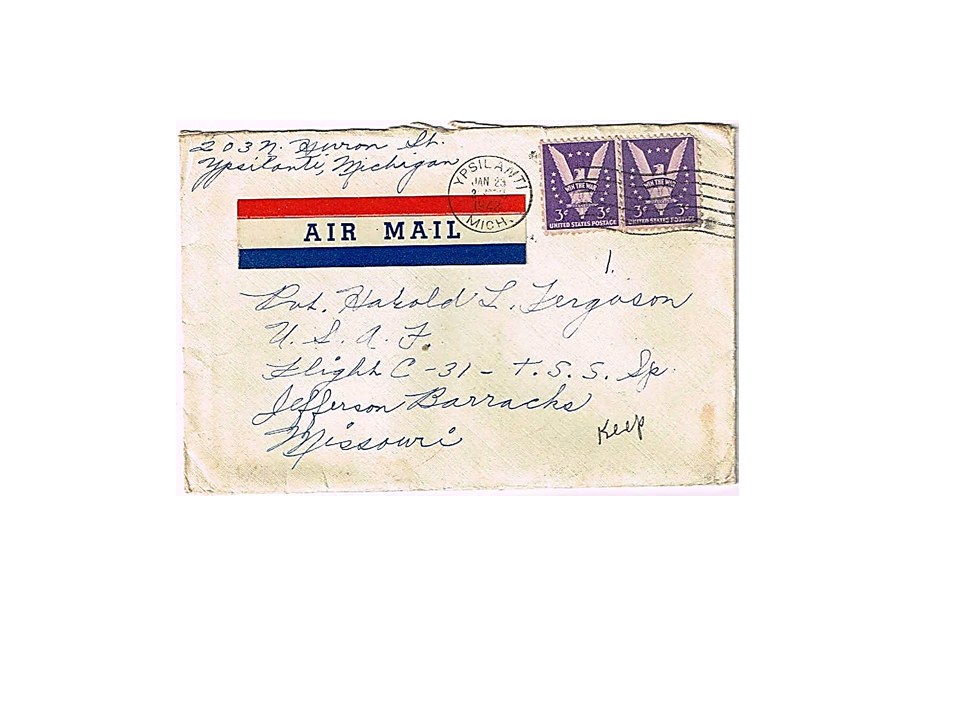 203 N. Huron St.
Ypsilanti, Michigan
YPSILANTI
JAN 23
MICH.
WIN THE WAR
3¢ 3¢
UNITED STATES POSTAGE
WIN THE WAR
3¢ 3¢
UNITED STATES POSTAGE
AIR MAIL
1.
Pvt. Harold L. Ferguson
U. S. A. F.
Flight C-31- T. S. S. Sp.
Jefferson Barracks
Missouri
Keep